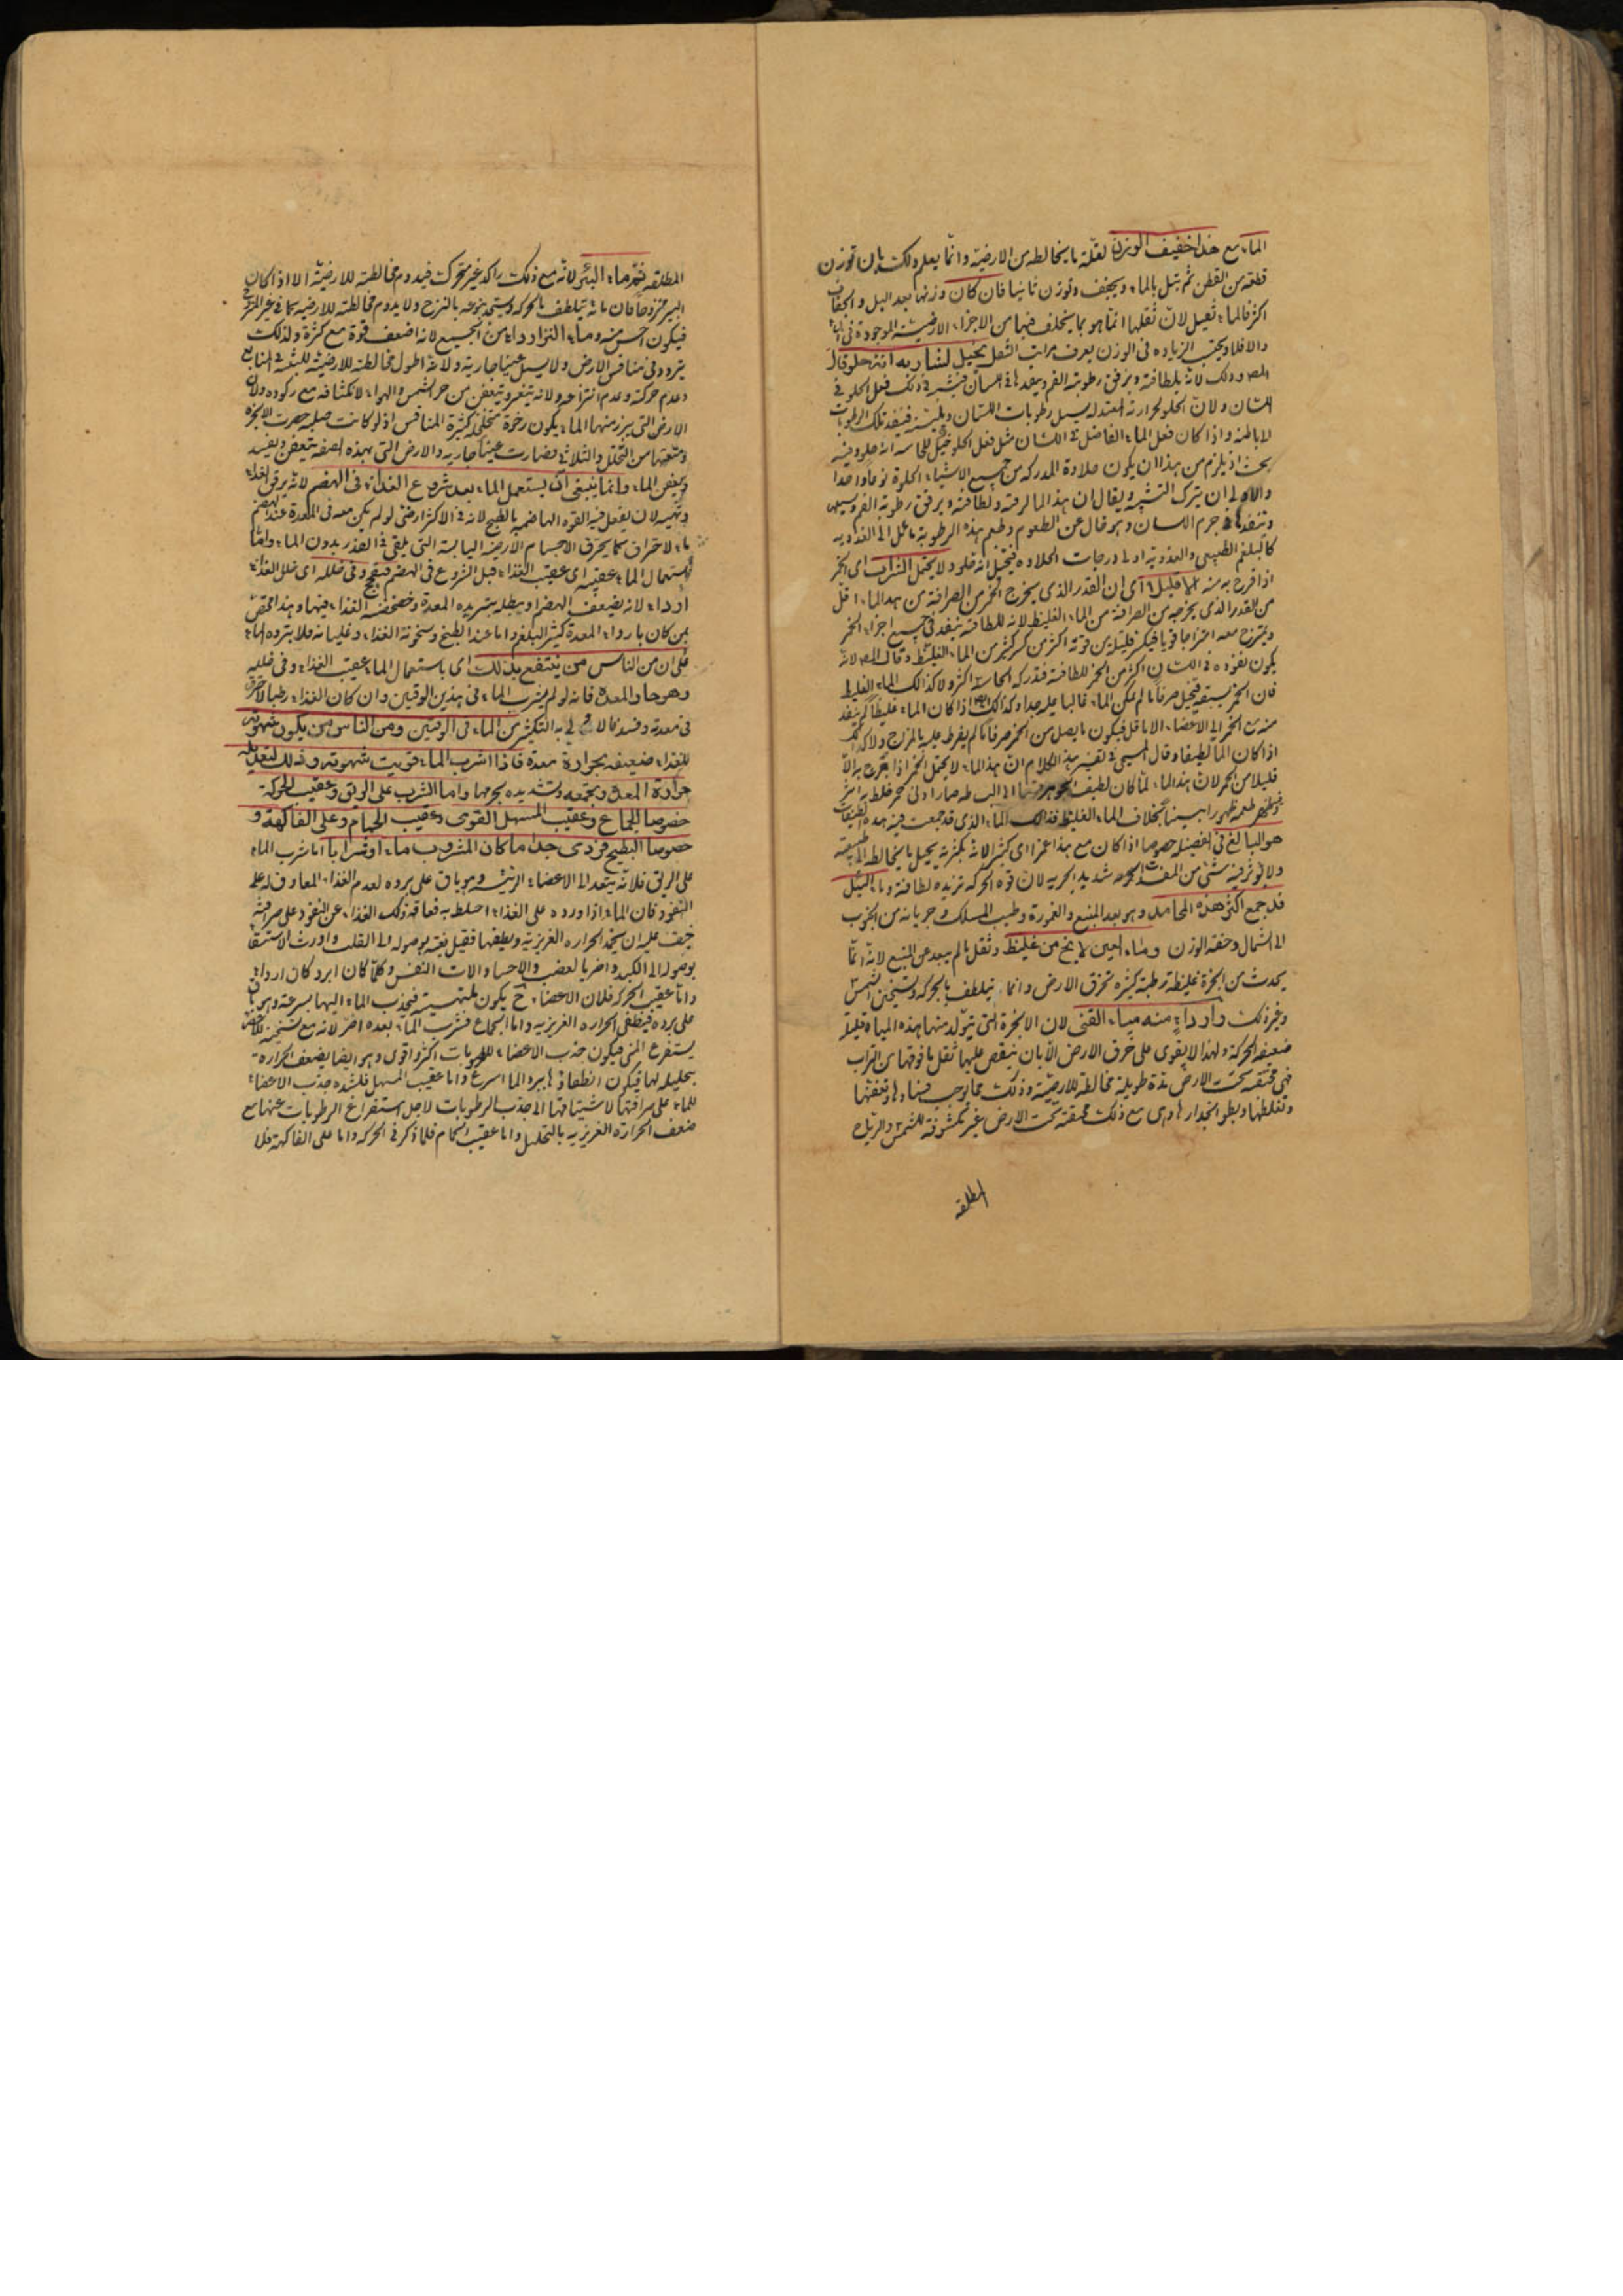 الماء مع هذا خفيف الوزن لقلة ما يخالطه من الارضية وانما يعلم ذلك بان توزن
قطعة من القطن ثم تبل بالماء ويجفف وتوزن ثانيا فان كان وزنها بعد البل والجفاف
اكثر فالماء ثقيل لان ثقلها انما هو بما يتخلف فيها من الاجزاء الارضية الموجودة في الماء
والا فلا وبحسب الزيادة في الوزن يعرف مراتب الثقل يخيل لشاربه انه حلو قال
المص وذلك لانه بلطافته ويرقق رطوبته الفم وينفذها في اللسان فيشبه في ذلك فعل الحلو في
اللسان ولان الحلو لحرارته المعتدلة يسيل رطوبات اللسان ويلينه فينفذ تلك الرطوبات
الى باطنه واذا كان فعل الماء الفاضل في اللسان مثل فعل الحلو خيل للحاسة انه حلو وفيه
بحث اذ يلزم من هذا ان يكون حلاوة المدركة من جميع الاشياء الحلوة نوعا واحدا
والاولى ان يترك التشبيه ويقال ان هذا الماء لرقته ولطافته ويرقق رطوبة الفم ويسيلها
وتنفذها في جرم اللسان وهو خال عن الطعوم وطعم هذه الرطوبة مائل الى العذوبة
كالبلغم الطبيعي والعذوبة اولى درجات الحلاوة فيتخيل انه حلو ولا يحتمل الشراب اى الخمر
اذا مزج به منه الا قليلا اى ان القدر الذي يخرج الخمر من الصرافة من هذا الماء اقل
من القدر الذي يخرجه من الصرافة من الماء الغليظ لانه للطافته ينفذ في جميع اجزاء الخمر
ويمتزج معه امتزاجا قويا فيكسر قليله من قوته اكثر من كسر كثير من الماء الغليظ وقال المص لانه
يكون نفوذه في اللسان اكثر من الخمر للطافته فتدركه الحاسة اكثر ولا كذلك الماء الغليظ
فان الخمر يسبقه فيتخيل صرفا ما لم يكن الماء غالبا عليه جدا وكذلك اذا كان الماء غليظا لم ينفذ
منه مع الخمر الى الاعضاء الا ما قل فيكون ما يصل من الخمر صرفا ما لم يفرط عليه بالمزاج ولا كذلك
اذا كان الماء لطيفا وقال المسيحي في تفسير هذا الكلام ان هذا الماء لا يحتمل الخمر اذا مزج به الا
قليلا من الخمر لان هذا الماء لما كان لطيف الجوهر الى البساطة صار ادنى خمر خلط به اثر
وظهر طعمه ظهورا بينا بخلاف الماء الغليظ فذلك الماء الذي قد جمعت فيه هذه الصفات
هو البالغ في الفضيلة خصوصا اذا كان مع هذا غمرا اى كثيرا لانه بكثرته يحيل ما يخالطه الى طبيعته
ولا يؤثر فيه شئ من المفسدات شديد الجرية لان قوة الحركة تزيده لطافة وماء النيل
قد جمع اكثر هذه المحامد وهو بعد المنبع والغمورة وطيب المسلك وجريانه من الجنوب
الى الشمال وخفة الوزن وماء العين لا يخ من غليظ وثقل ما لم يبعد عن المنبع لانه انما
يحدث من ابخرة غليظة رطبة كثيرة تخرق الارض وانما يتلطف بالحركة وتسخين الشمس
وغير ذلك واردأ منه مياه القنى لان الابخرة التي يتولد منها هذه المياه قليلة
ضعيفة الحركة ولهذا لا يقوى على خرق الارض الا بان ينقص عليها ثقل ما فوقها من التراب
فهي محتقنة تحت الارض مدة طويلة مخالطة للارضية وذلك مما يوجب فسادها وتعفنها
وتغلظها وبطو انحدارها وهى مع ذلك محتقنة تحت الارض غير مكشوفة للشمس والرياح
المطلقة
المطلقة ثم ماء البئر لانه مع ذلك راكد غير متحرك فيدوم مخالطته للارضية الا اذا كان
البير منزوحا فان ماءه يتلطف بالحركة ويستجد نبوعه بالنزح ولا يدوم مخالطته للارضية كما في غير المنزوح
فيكون احسن منه وماء النز اردأ من الجميع لانه اضعف قوة مع كثرة ولذلك
يتردد في منافس الارض ولا يسيل عينا جارية ولانه اطول مخالطة للارضية للبثه في المنابع
وعدم حركته وعدم انتزاعه ولانه يتغير ويتعفن من حر الشمس والهواء لانكشافه مع ركوده ولان
الارض التي يبرز منها الماء يكون رخوة متخلخلة كثيرة المنافس اذ لو كانت صلبة حصرت الابخرة
ومنعتها من التحلل والتلاشي فصارت عينا جارية والارض التي بهذه الصفة يتعفن ويفسد
ويعفن الماء وانما ينبغي ان يستعمل الماء بعد شروع الغذاء في الهضم لانه يرقق الغذاء
ويهيئه لان يفعل فيه القوة الهاضمة بالطبخ لانه في الاكثر ارضى لو لم يكن معه في المعدة عند الهضم
ماء لاحترق كما يحترق الاجسام الارضية اليابسة التي يلقى في القدر بدون الماء واما
استعمال الماء عقيبه اى عقيب الغذاء قبل الشروع في الهضم فيفجج وفي خلله اى خلل الغذاء
اردأ لانه يضعف الهضم او يبطله بتبريده المعدة وخضخضة الغذاء فيها وهذا مختص
بمن كان بارد المعدة كثير البلغم واما عند الطبخ وسخونة الغذاء وغليانه فلا يبرده الماء
على ان من الناس من ينتفع بذلك اى باستعمال الماء عقيب الغذاء وفي خلله
وهو حار المعدة فانه لو لم يشرب الماء في هذين الوقتين وان كان الغذاء رطبا لاحترق
في معدته وفسد فالاولى به التكثير من الماء في الوقتين ومن الناس من يكون شهوته
للغذاء ضعيفة بحرارة معدة فاذا شرب الماء قويت شهوته وذلك لتعديله
حرارة المعدة وبجمعه وتشديده بجرمها واما الشرب على الريق وعقيب الحركة
خصوصا الجماع وعقيب المسهل القوى وعقيب الحمام وعلى الفاكهة و
خصوصا البطيخ فردى جدا ما كان المشروب ماء او شرابا اما شرب الماء
على الريق فلانه ينفذ الى الاعضاء الرئيسة وهو باق على برده لعدم الغذاء المعاوق له على
النفوذ فان الماء اذا ورد على الغذاء اختلط به فعاقه ذلك الغذاء عن النفوذ على صرافته
خيف عليه ان يخمد الحرارة الغريزية ويطفيها فيقتل بغتة بوصوله الى القلب واورث الاستسقاء
بوصوله الى الكبد واضر بالعصب والاحشاء والات النفس وكلما كان ابرد كان اردأ
واما عقيب الحركة فلان الاعضاء ح يكون ملتهبة فيجذب الماء اليها بسرعة وهو باق
على برده فيطفى الحرارة الغريزية واما الجماع فشرب الماء بعده اضر لانه مع تسخين الاعضاء
يستفرغ المنى فيكون جذب الاعضاء للرطوبات اكثر واقوى وهو ايضا يضعف الحرارة
بتحليله لها فيكون انطفاؤها ببرد الماء اسرع واما عقيب المسهل فلشدة جذب الاعضاء
للماء على صرافتها لاشتياقها الى جذب الرطوبات لاجل استفراغ الرطوبات عنها مع
ضعف الحرارة الغريزية بالتحليل واما عقيب الحمام فلما ذكر في الحركة واما على الفاكهة فلا